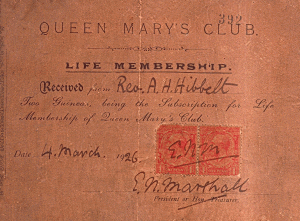 392
QUEEN MARY'S CLUB.
LIFE MEMBERSHIP.
Received from Rev. A. H. Hibbelt
Two Guineas, being the Subscription for Life
Membership of Queen Mary's Club.
Date 4. March. 1926.
E.N.M
E. N. Marshall
President or Hon. Treasurer.